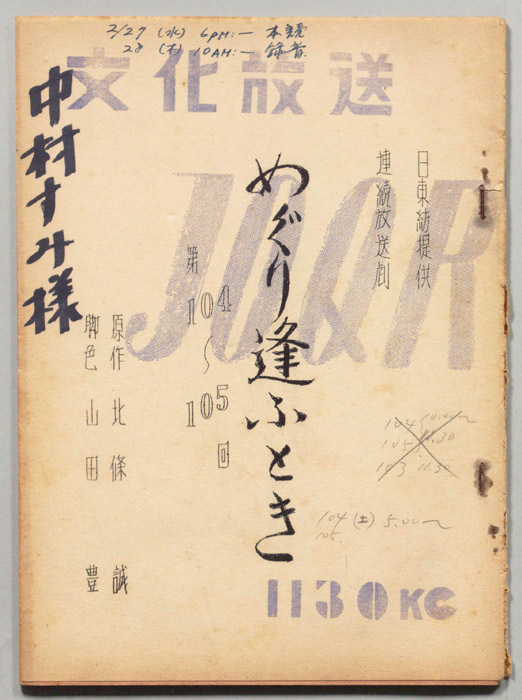 2/27 (水) 6PM:— 本読
28 (木) 10AM:— 録音
文化放送
JOQR
日東紡提供
連続放送劇
めぐり逢ふとき
第104〜105回
原作 北條 誠
脚色 山田 豊
中村すみ様
104 10.00〜
105 11.30
103 11.30
104 (土) 5.00〜
105.
1130KC